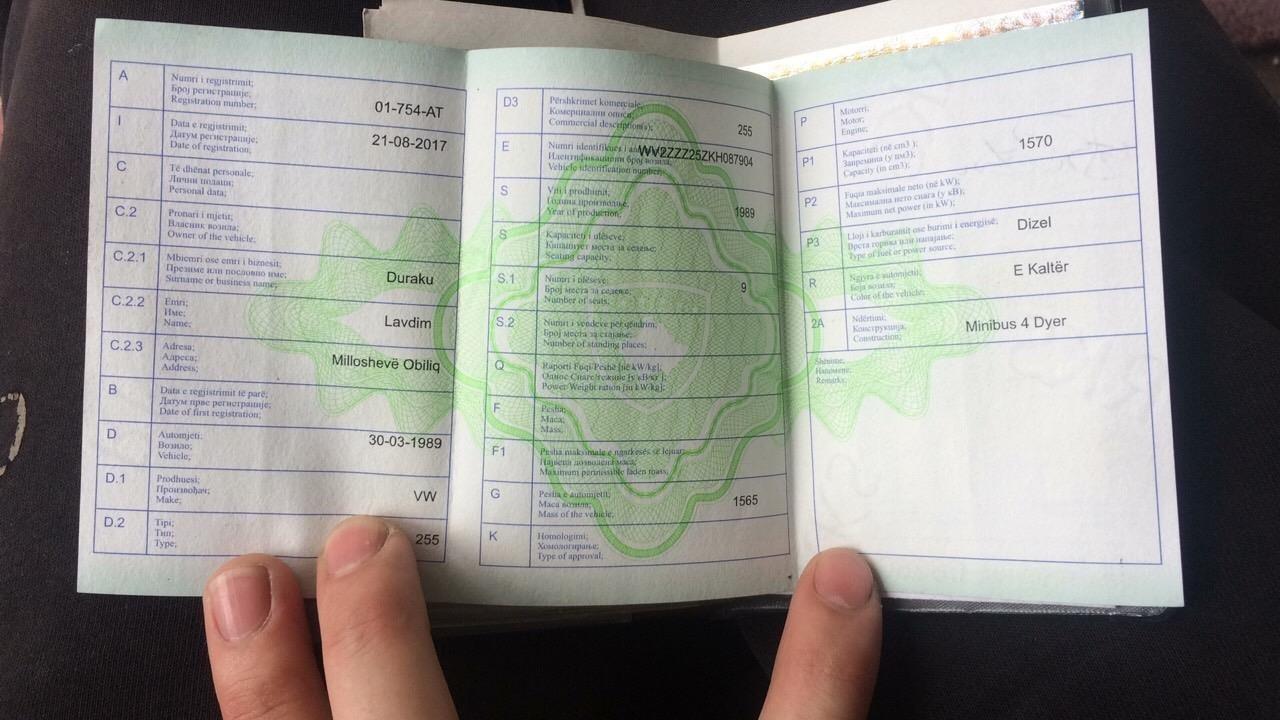 A
Numri i regjistrimit;
Број регистрације;
Registration number;
01-754-AT
I
Data e regjistrimit;
Датум регистрације;
Date of registration;
21-08-2017
C
Të dhënat personale;
Лични подаци;
Personal data;
C.2
Pronari i mjetit;
Власник возила;
Owner of the vehicle;
C.2.1
Mbiemri ose emri i biznesit;
Презиме или пословно име;
Surname or business name;
Duraku
C.2.2
Emri;
Име;
Name;
Lavdim
C.2.3
Adresa;
Адреса;
Address;
Milloshevë Obiliq
B
Data e regjistrimit të parë;
Датум прве регистрације;
Date of first registration;
30-03-1989
D
Automjeti;
Возило;
Vehicle;
D.1
Prodhuesi;
Произвођач;
Make;
VW
D.2
Tipi;
Тип;
Type;
255
D3
Përshkrimet komerciale;
Комерцијални описи;
Commercial description(s);
255
E
Numri identifikues i
Идентификациони број возила;
Vehicle identification number;
WV2ZZZ25ZKH087904
S
Viti i prodhimit;
Година производње;
Year of production;
1989
S
Kapaciteti i ulëseve;
Капацитет места за седење;
Seating capacity;
S.1
Numri i ulëseve;
Број места за седење;
Number of seats;
9
S.2
Numri i vendeve për qëndrim;
Број места за стајање;
Number of standing places;
Q
Raporti Fuqi/Peshë [në kW/kg];
Однос Снаге/тежине [у кВ/кг];
Power/Weight ration [in kW/kg];
F
Pesha;
Маса;
Mass;
F1
Pesha maksimale e ngarkesës së lejuar;
Највећа дозвољена маса;
Maximum permissible laden mass;
G
Pesha e automjetit;
Маса возила;
Mass of the vehicle;
1565
K
Homologimi;
Хомологирање;
Type of approval;
P
Motorri;
Мотор;
Engine;
P1
Kapaciteti (në cm3 );
Запремина (у цм3);
Capacity (in cm3);
1570
P2
Fuqia maksimale neto (në kW);
Максимална нето снага (у кВ);
Maximum net power (in kW);
P3
Lloji i karburantit ose burimi i energjisë;
Врста горива или напајање;
Type of fuel or power source;
Dizel
R
Ngjyra e automjetit;
Боја возила;
Color of the vehicle;
E Kaltër
2A
Ndërtimi;
Конструкција;
Construction;
Minibus 4 Dyer
Shënime;
Напомене;
Remarks;